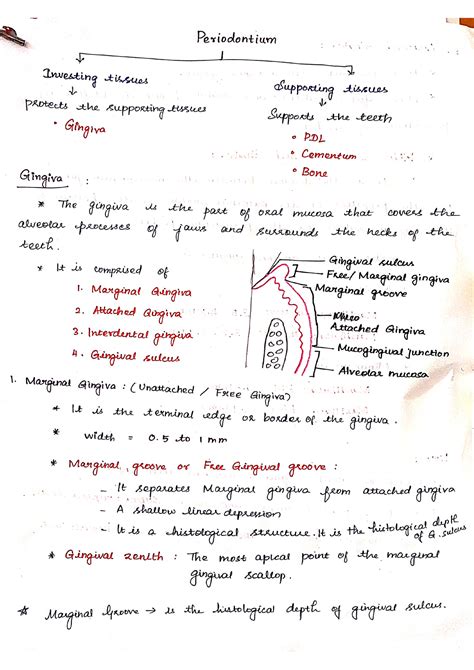 Periodontium
Investing tissues
protects the supporting tissues
• Gingiva
Supporting tissues
Supports the teeth
• PDL
• Cementum
• Bone
Gingiva :
* The gingiva is the part of oral mucosa that covers the
alveolar processes of jaws and surrounds the necks of the
teeth.
* It is comprised of
1. Marginal Gingiva
2. Attached Gingiva
3. Interdental gingiva
4. Gingival sulcus
Gingival sulcus
Free/Marginal gingiva
Marginal groove
Attached Gingiva
Mucogingival Junction
Alveolar mucosa
1. Marginal Gingiva : (Unattached / Free Gingiva)
* It is the terminal edge or border of the gingiva.
* width = 0.5 to 1 mm
* Marginal groove or Free Gingival groove :
- It separates Marginal gingiva from attached gingiva
- A shallow linear depression
- It is a histological structure. It is the histological depth
of G. sulcus
* Gingival zenith : The most apical point of the marginal
gingival scallop.
* Marginal Groove → is the histological depth of gingival sulcus.